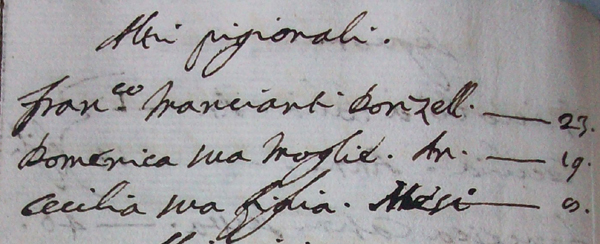 Altri pigionali.
Fran.co Marcianti Donzell. — 23.
Domenica sua Moglie. An. — 19.
Cecilia sua figlia. Mesi — 8.